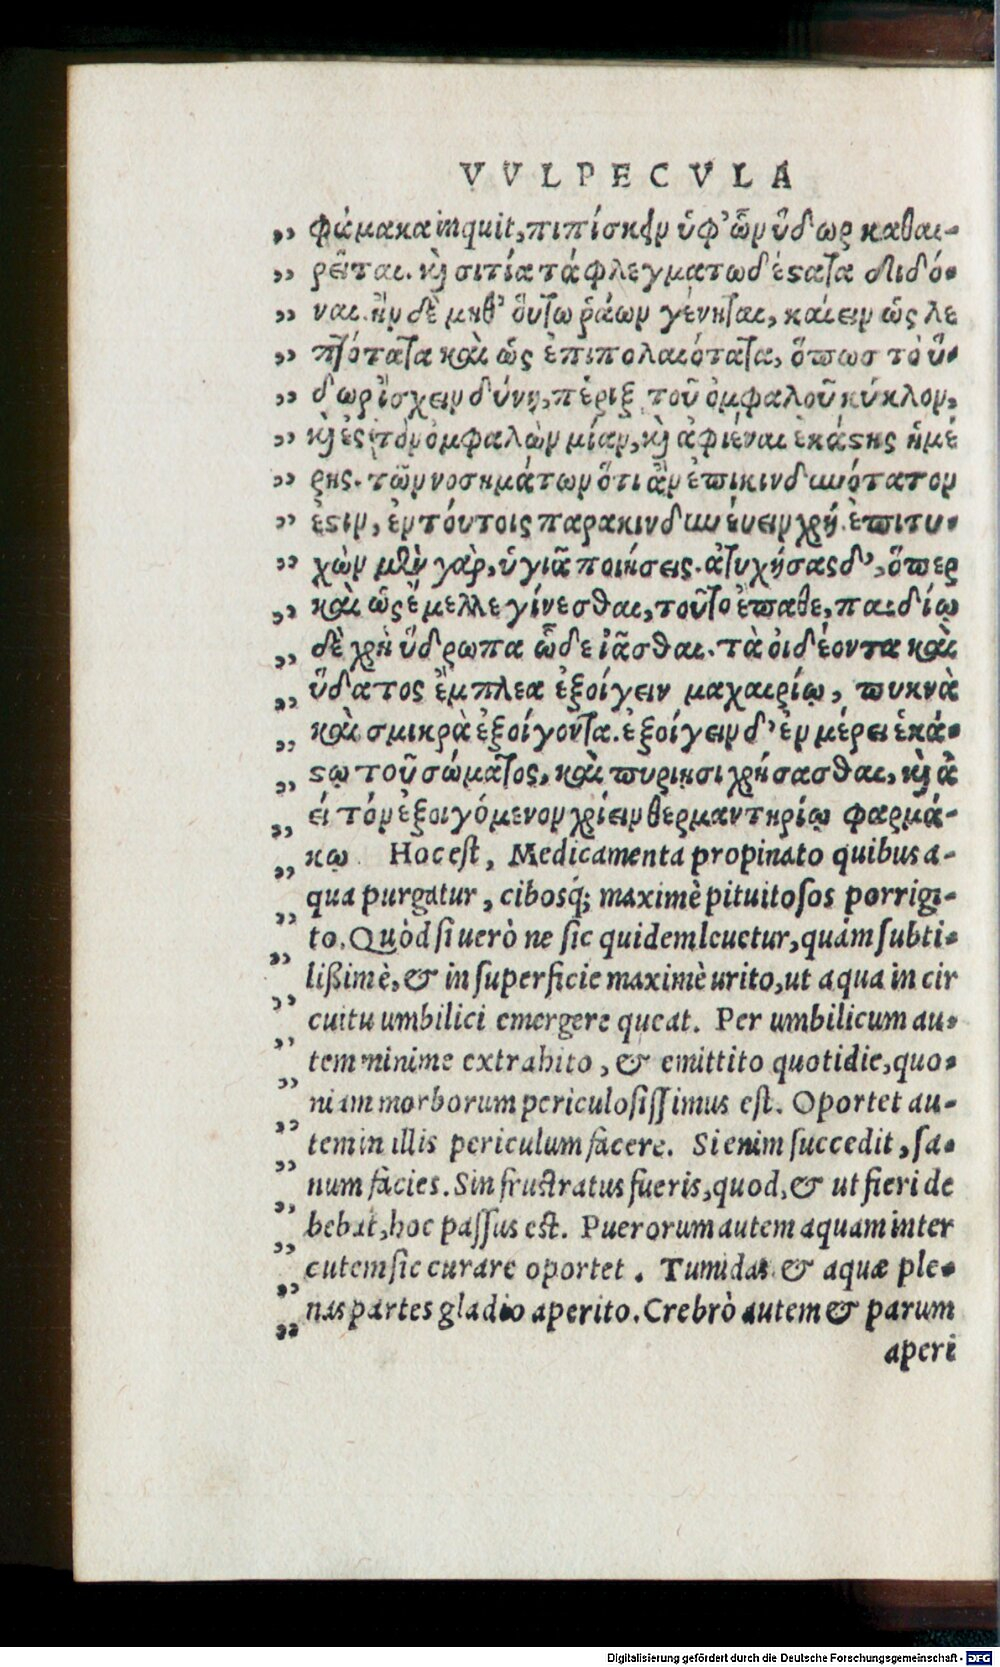 VVLPECVLA
„ φάμακα inquit, πιπίσκειν ὑφ' ὧν ὕδωρ καθαι-
„ ρεῖται. καὶ σιτία τὰ φλεγματωδέστατα διδό-
„ ναι. ἢν δὲ μηθ' οὕτω ῥάων γένηται, καίειν ὡς λε
„ πτότατα καὶ ὡς ἐπιπολαιότατα, ὅπως τὸ ὕ-
„ δωρ ἴσχειν δύνῃ, πέριξ τοῦ ὀμφαλοῦ κύκλον,
„ καὶ ἐς τὸν ὀμφαλὼν μίαν, καὶ ἀφιέναι ἑκάστης ἡμέ
„ ρης. τῶν νοσημάτων ὅτι ἂν ἐπικινδυνότατον
„ ἐστιν, ἐν τούτοις παρακινδυνεύειν χρή. ἐπιτυ-
„ χὼν μὲν γὰρ, ὑγιᾶ ποιήσεις. ἀτυχήσας δ', ὅπερ
„ καὶ ὡς ἔμελλε γίνεσθαι, τοῦτο ἔπαθε, παιδίῳ
„ δὲ χρὴ ὕδρωπα ὧδε ἰᾶσθαι. τὰ οἰδέοντα καὶ
„ ὕδατος ἔμπλεα ἐξοίγειν μαχαιρίῳ, πυκνὰ
„ καὶ σμικρὰ ἐξοίγοντα. ἐξοίγειν δ' ἐν μέρει ἑκά-
„ στῳ τοῦ σώματος, καὶ πυριῃσι χρήσασθαι, καὶ ἀ
„ εί τὸν ἐξοιγόμενον χρίειν θερμαντηρίῳ φαρμά-
„ κῳ. Hoc est, Medicamenta propinato quibus a-
„ qua purgatur, cibosq́; maximè pituitosos porrigi-
„ to. Quòd si uerò ne sic quidem leuetur, quàm subti-
„ lißimè, & in superficie maximè urito, ut aqua in cir
„ cuitu umbilici emergere queat. Per umbilicum au-
„ tem minime extrahito, & emittito quotidie, quo-
„ niam morborum periculosissimus est. Oportet au-
„ tem in illis periculum facere. Si enim succedit, sa-
„ num facies. Sin frustratus fueris, quod, & ut fieri de
„ bebat, hoc passus est. Puerorum autem aquam inter
„ cutem sic curare oportet. Tumidas & aquæ ple-
„ nas partes gladio aperito. Crebrò autem & parum
aperi
Digitalisierung gefördert durch die Deutsche Forschungsgemeinschaft - DFG